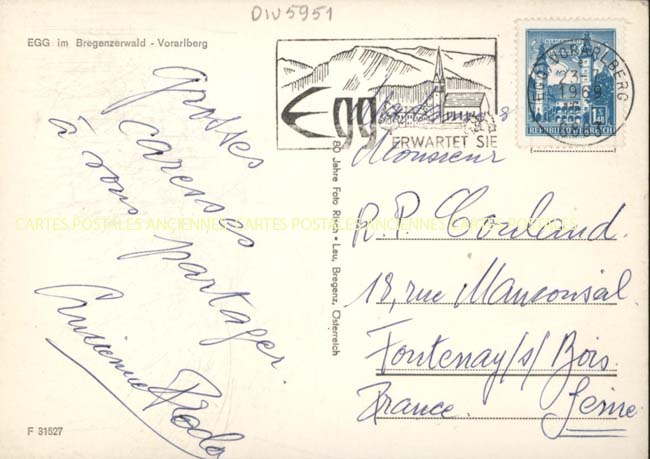 DIV5951
EGG im Bregenzerwald - Vorarlberg
Egg
ERWARTET SIE
EGG, VORARLBERG
23.
1969
REPUBLIK ÖSTERREICH
Grosses
caresses
à vous partager.
CARTES POSTALES ANCIENNES CARTES POSTALES ANCIENNES CARTES POSTALES
80 Jahre Foto Risch - Lau, Bregenz, Österreich
Monsieur
R. P. Couland.
18, rue Mansonsal.
Fontenay/s/Bois.
France. Seine
F 31527